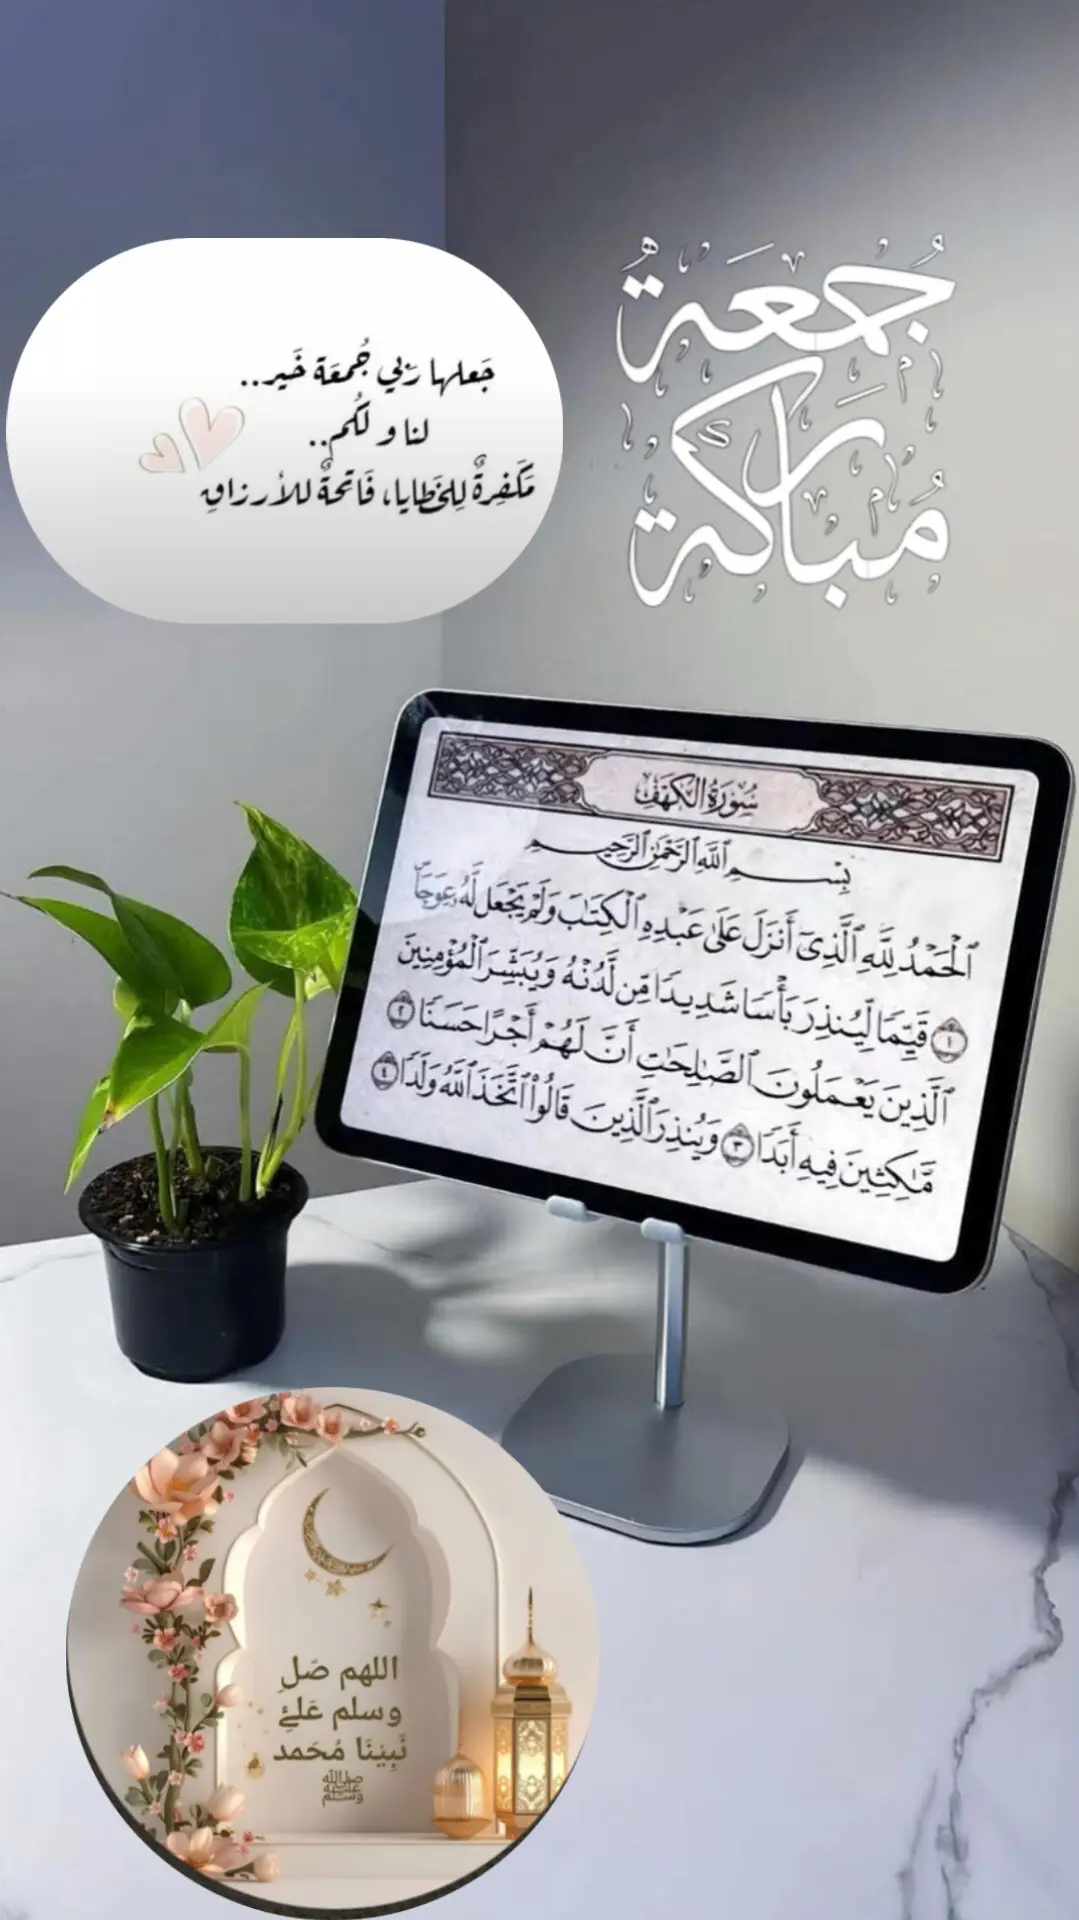 جُمعَةٌ
مُبَارَكَة
جَعلها رَبي جُمعَة خَير..
لنا و لكُم..
مَكَفِرةٌ لِلخَطايا، فَاتحةٌ للأرزاقِ
سُورَةُ الكَهَف
بِسْمِ ٱللَّهِ ٱلرَّحْمَٰنِ ٱلرَّحِيمِ
ٱلْحَمْدُ لِلَّهِ ٱلَّذِىٓ أَنزَلَ عَلَىٰ عَبْدِهِ ٱلْكِتَٰبَ وَلَمْ يَجْعَل لَّهُۥ عِوَجَاۜ
١ قَيِّمًا لِّيُنذِرَ بَأْسًا شَدِيدًا مِّن لَّدُنْهُ وَيُبَشِّرَ ٱلْمُؤْمِنِينَ
ٱلَّذِينَ يَعْمَلُونَ ٱلصَّٰلِحَٰتِ أَنَّ لَهُمْ أَجْرًا حَسَنًا ٢
مَّٰكِثِينَ فِيهِ أَبَدًا ٣ وَيُنذِرَ ٱلَّذِينَ قَالُوا۟ ٱتَّخَذَ ٱللَّهُ وَلَدًا ٤
اللهم صَلِ
وسلم عَلىٰ
نَبِيْنَا مُحَمد
ﷺ